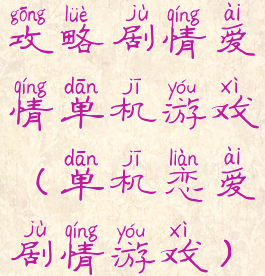 gōng lüè jù qíng ài
攻略剧情爱
qíng dān jī yóu xì
情单机游戏
dān jī liàn ài
（单机恋爱
jù qíng yóu xì
剧情游戏）